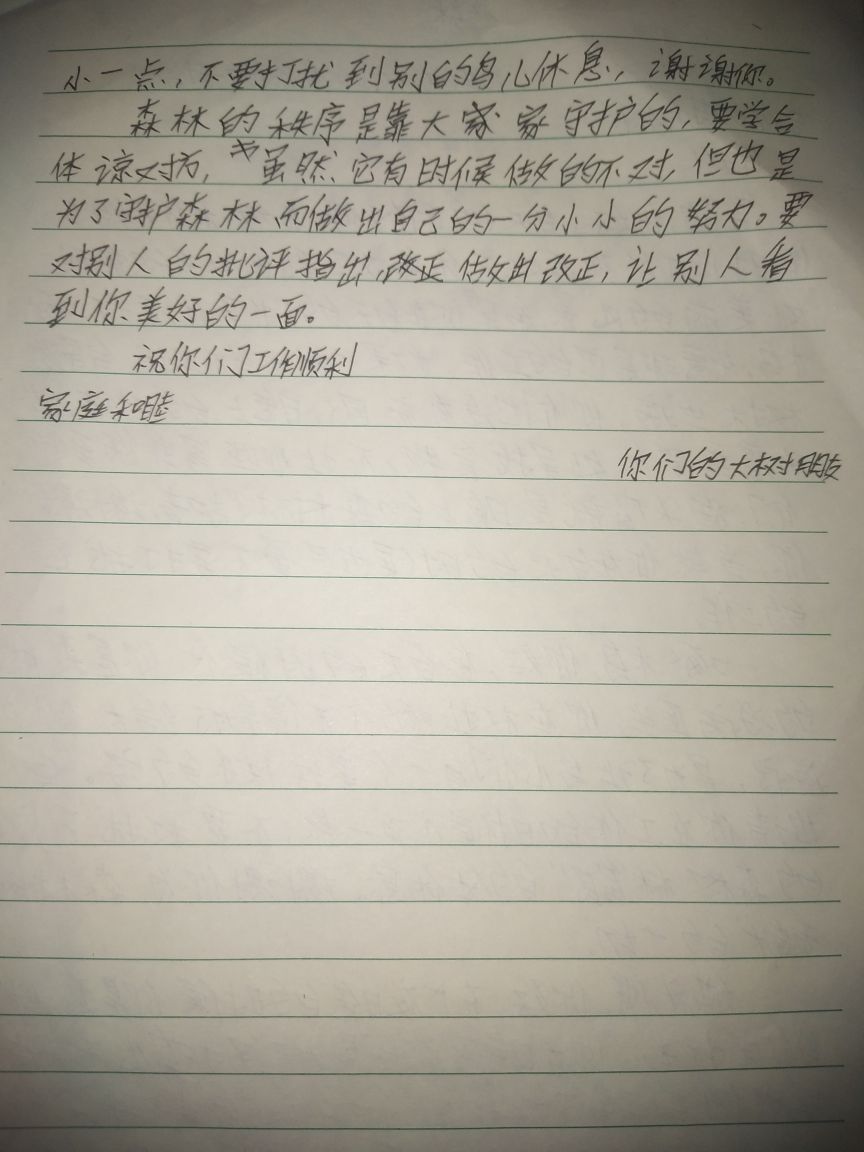 小一点，不要打扰到别的鸟儿休息，谢谢你。
森林的秩序是靠大家家守护的，要学会
体谅对方，虽然它有时候做的不对，但也是
为了守护森林、而做出自己的一分小小的努力。要
对别人的批评指出，改正做出改正，让别人看
到你美好的一面。
祝你们工作顺利
家庭和睦
你们的大树朋友